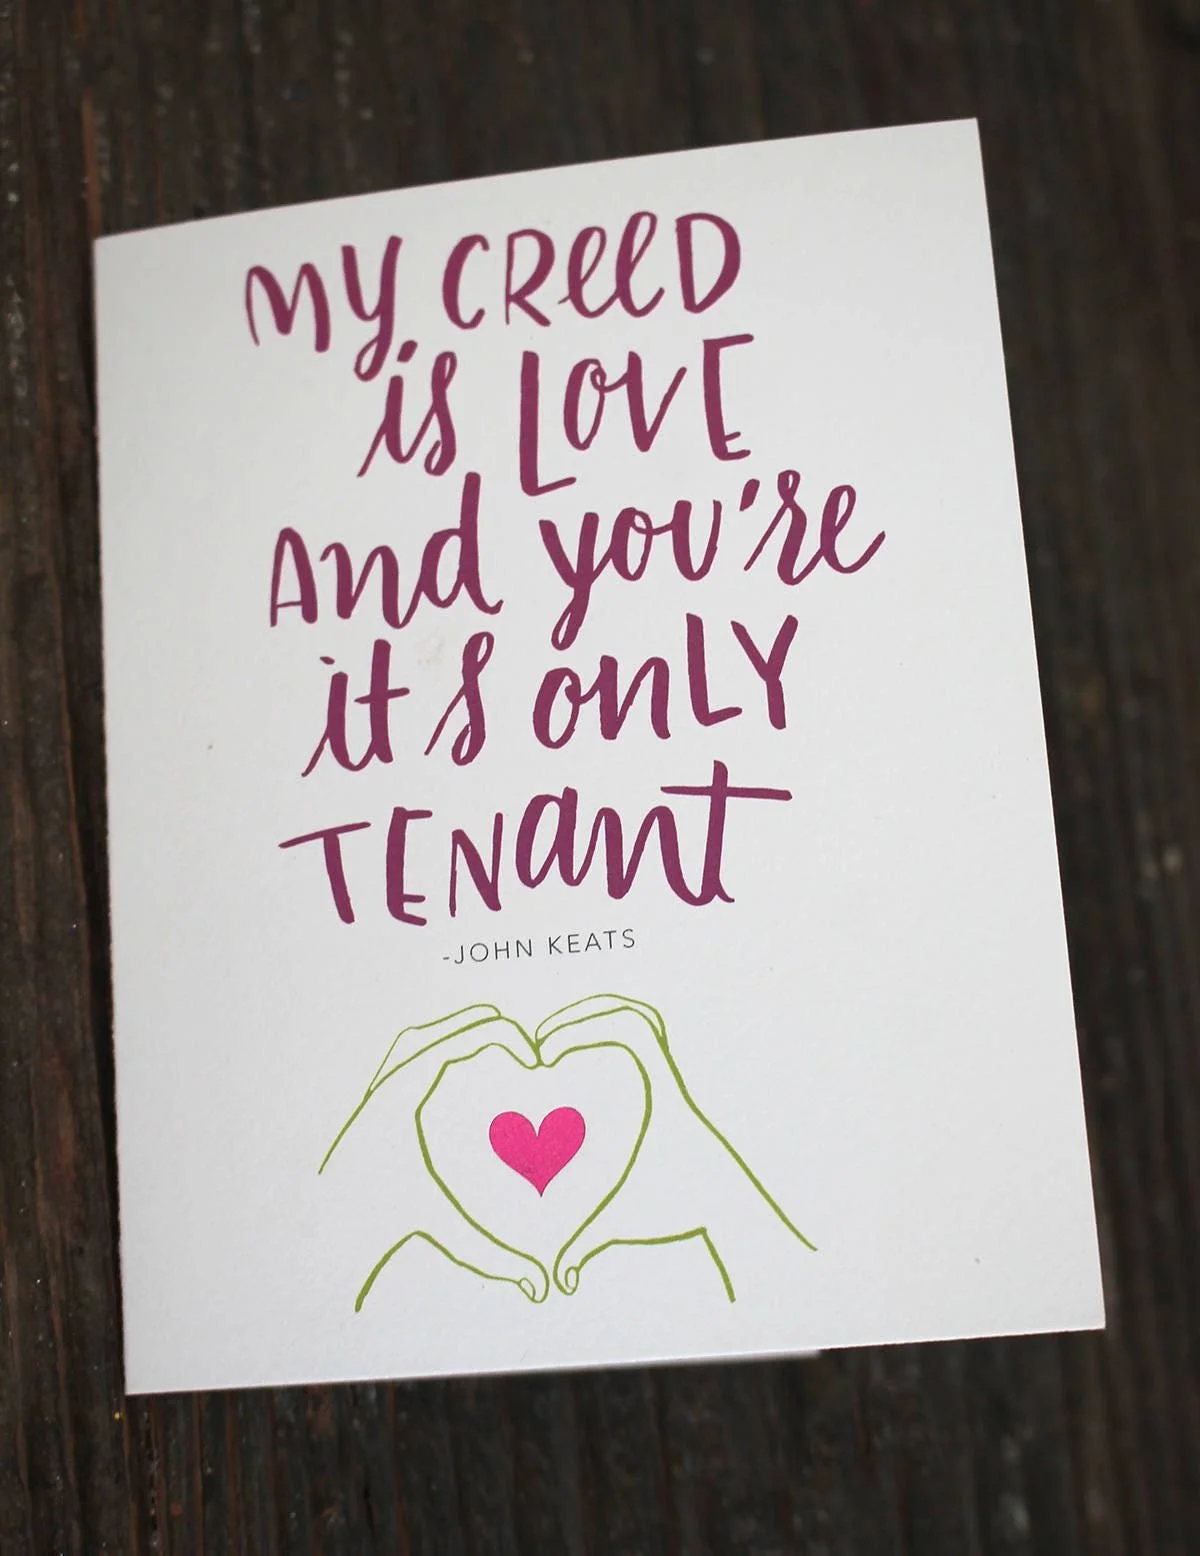 My CReeD
is LOVE
And you're
its onLY
TENanT
-JOHN KEATS